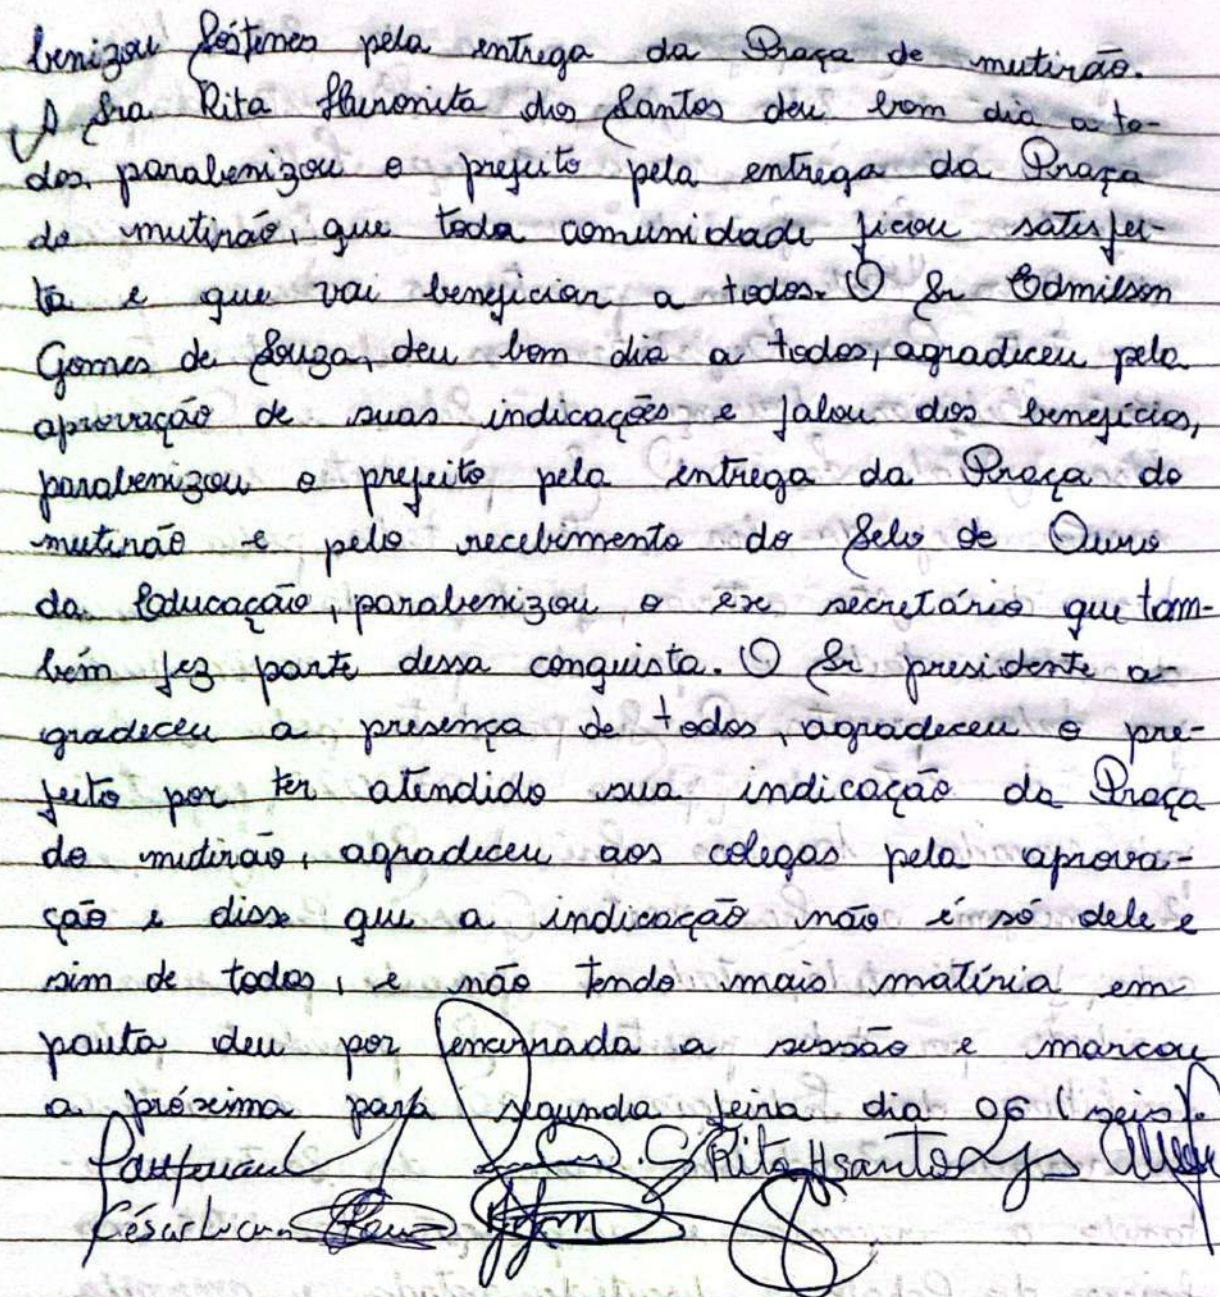 benizou Sóstenes pela entrega da Praça de mutirão.
A Sra Rita Huronita dos Santos deu bom dia a to-
dos, parabenizou o prefeito pela entrega da Praça
do mutirão, que toda comunidade ficou satisfei-
ta e que vai beneficiar a todos. O Sr Edmilson
Gomes de Souza, deu bom dia a todos, agradeceu pela
aprovação de suas indicações e falou dos benefícios,
parabenizou o prefeito pela entrega da Praça do
mutirão e pelo recebimento do Selo de Ouro
da Educação, parabenizou o ex secretário que tam-
bém fez parte dessa conquista. O Sr presidente a-
gradeceu a presença de todos, agradeceu o pre-
feito por ter atendido sua indicação da Praça
do mutirão, agradeceu aos colegas pela aprova-
ção e disse que a indicação não é só dele e
sim de todos, e não tendo mais matéria em
pauta deu por encerrada a sessão e marcou
a próxima para segunda feira dia 06 (seis).
Rita H Santos
César